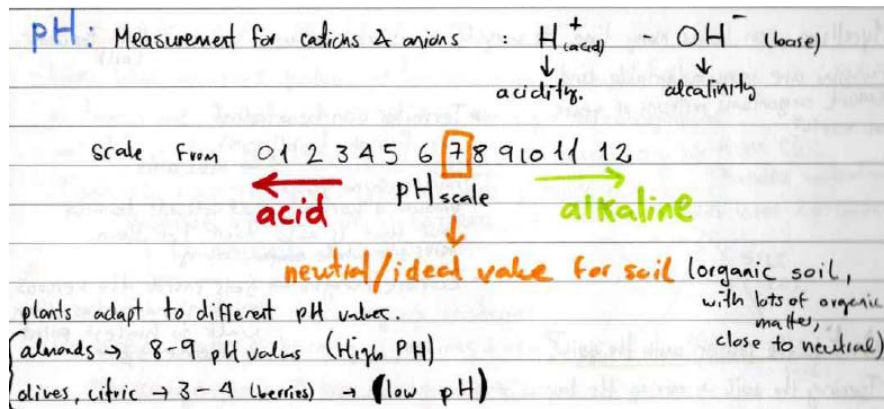 pH: Measurement for cations & anions : H+ (acid) - OH- (base)
↓ acidity. ↓ alcalinity
Scale From 0 1 2 3 4 5 6 7 8 9 10 11 12
← acid pH scale → alkaline
↓
neutral/ideal value for soil (organic soil,
with lots of organic
matter,
close to neutral)
plants adapt to different pH values.
almonds → 8-9 pH values (High PH)
olives, citric → 3-4 (berries) → (low pH)